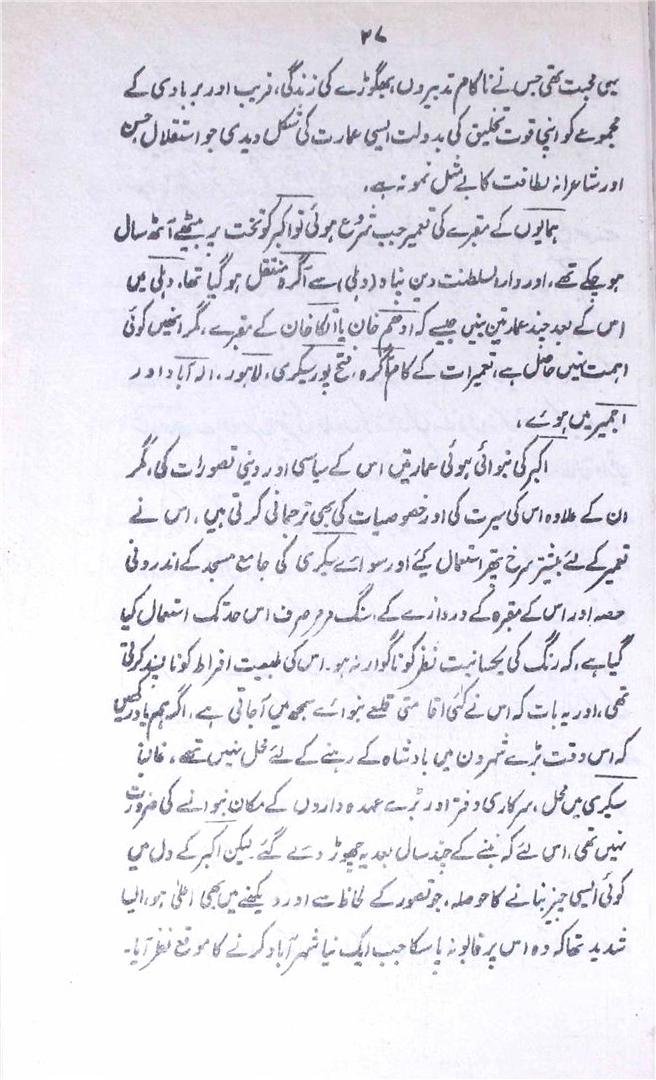 ۲۷
یہی محبت تھی جس نے ناکام تدبیروں، بھگوڑے کی زندگی، فریب اور بربادی کے
مجموعے کو اپنی قوت تخلیق کی بدولت ایسی عمارت کی شکل دیدی جو استقلال، حسن
اور شاعرانہ لطافت کا بے مثل نمونہ ہے۔
ہمایوں کے مقبرے کی تعمیر جب شروع ہوئی تو اکبر کو تخت پر بیٹھے آٹھ سال
ہو چکے تھے، اور دار السلطنت دین پناہ (دہلی) سے آگرہ منتقل ہو گیا تھا، دہلی میں
اس کے بعد چند عمارتیں بنیں جیسے کہ ادھم خان یا اتکا خان کے مقبرے، مگر انھیں کوئی
اہمیت نہیں حاصل ہے، تعمیرات کے کام آگرہ، فتح پور سیکری، لاہور، الہ آباد اور
اجمیر میں ہوئے،
اکبر کی بنوائی ہوئی عمارتیں اس کے سیاسی اور دینی تصورات کی، مگر
ان کے علاوہ اس کی سیرت کی اور خصوصیات کی بھی ترجمانی کرتی ہیں، اس نے
تعمیر کے لئے بیشتر سرخ پتھر استعمال کیے اور سوائے سیکری کی جامع مسجد کے اندرونی
حصہ اور اس کے مقبرہ کے دروازے کے، سنگ مرمر صرف اس حد تک استعمال کیا
گیا ہے، کہ رنگ کی یکسانیت نظر کو ناگوار نہ ہو، اس کی طبیعت افراط کو ناپسند کرتی
تھی، اور یہ بات کہ اس نے کئی اقامتی قلعے بنوائے سمجھ میں آ جاتی ہے، اگر ہم یاد رکھیں
کہ اس وقت بڑے شہروں میں بادشاہ کے رہنے کے لئے محل نہیں تھے، غالباً
سیکری میں محل، سرکاری دفتر اور بڑے عہدہ داروں کے مکان بنوانے کی ضرورت
نہیں تھی، اس لئے کہ بننے کے چند سال بعد یہ چھوڑ دئے گئے لیکن اکبر کے دل میں
کوئی ایسی چیز بنانے کا حوصلہ، جو تصور کے لحاظ سے اور دیکھنے میں بھی اعلیٰ ہو، ایسا
شدید تھا کہ وہ اس پر قابو نہ پا سکا جب ایک نیا شہر آباد کرنے کا موقع نظر آیا۔